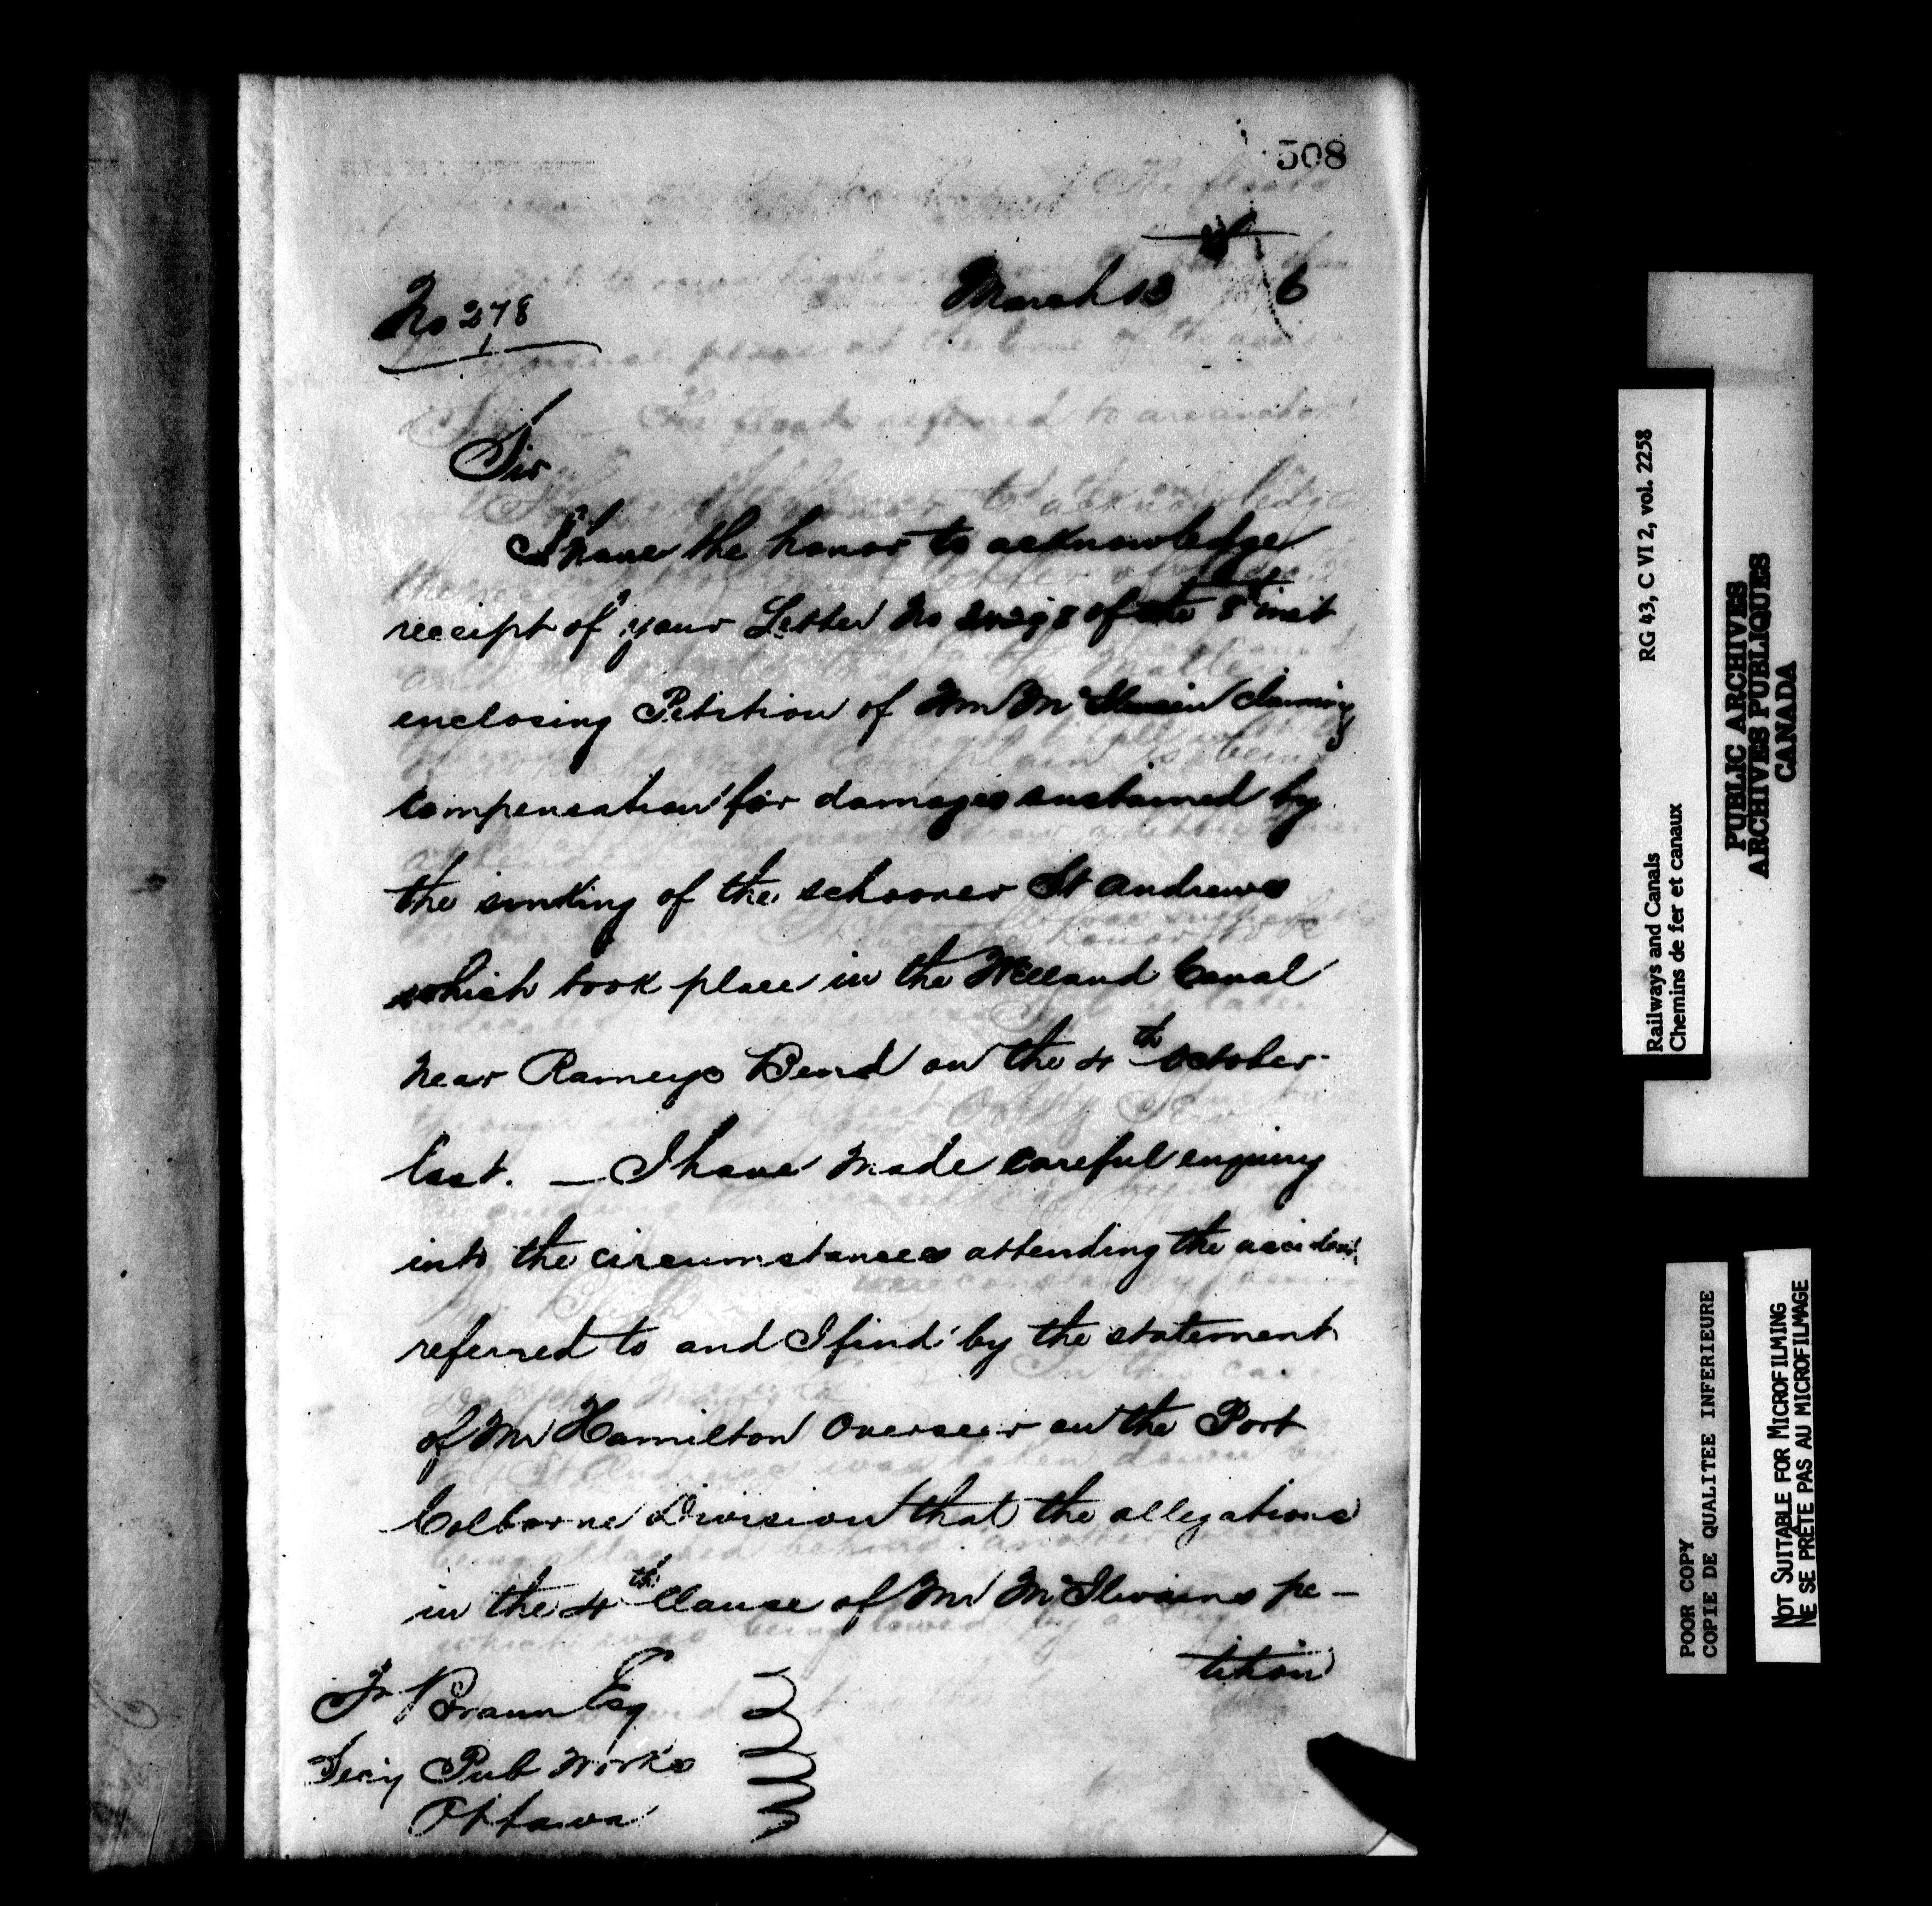 508
March 13 6
No 278
Sir
I have the honor to acknowledge
receipt of your Letter No of the 8th inst
enclosing Petition of Wm McIlwain claiming
compensation for damages sustained by
the sinking of the schooner St Andrews
which took place in the Welland Canal
near Rameys Bend on the 4th October
last. — I have made careful enquiry
into the circumstances attending the accident
referred to and I find by the statement
of Mr Hamilton Overseer on the Port
Colborne Division that the allegations
in the 4th Clause of Mr McIlwains pe-
tition
Fr Braun Esq
Secy Pub Works
Ottawa
Railways and Canals RG 43, C VI 2, vol. 2258
Chemins de fer et canaux
PUBLIC ARCHIVES
ARCHIVES PUBLIQUES
CANADA
POOR COPY
COPIE DE QUALITEE INFERIEURE
NOT SUITABLE FOR MICROFILMING
NE SE PRÊTE PAS AU MICROFILMAGE